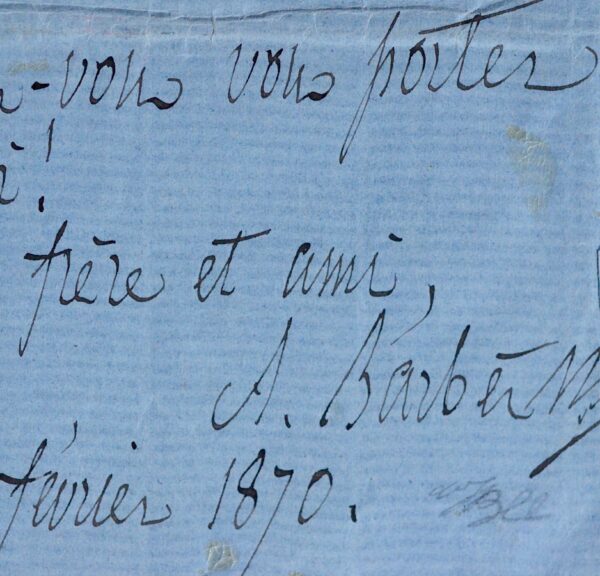 -vous vous porter
!
frère et ami,
A. Barbès
février 1870.